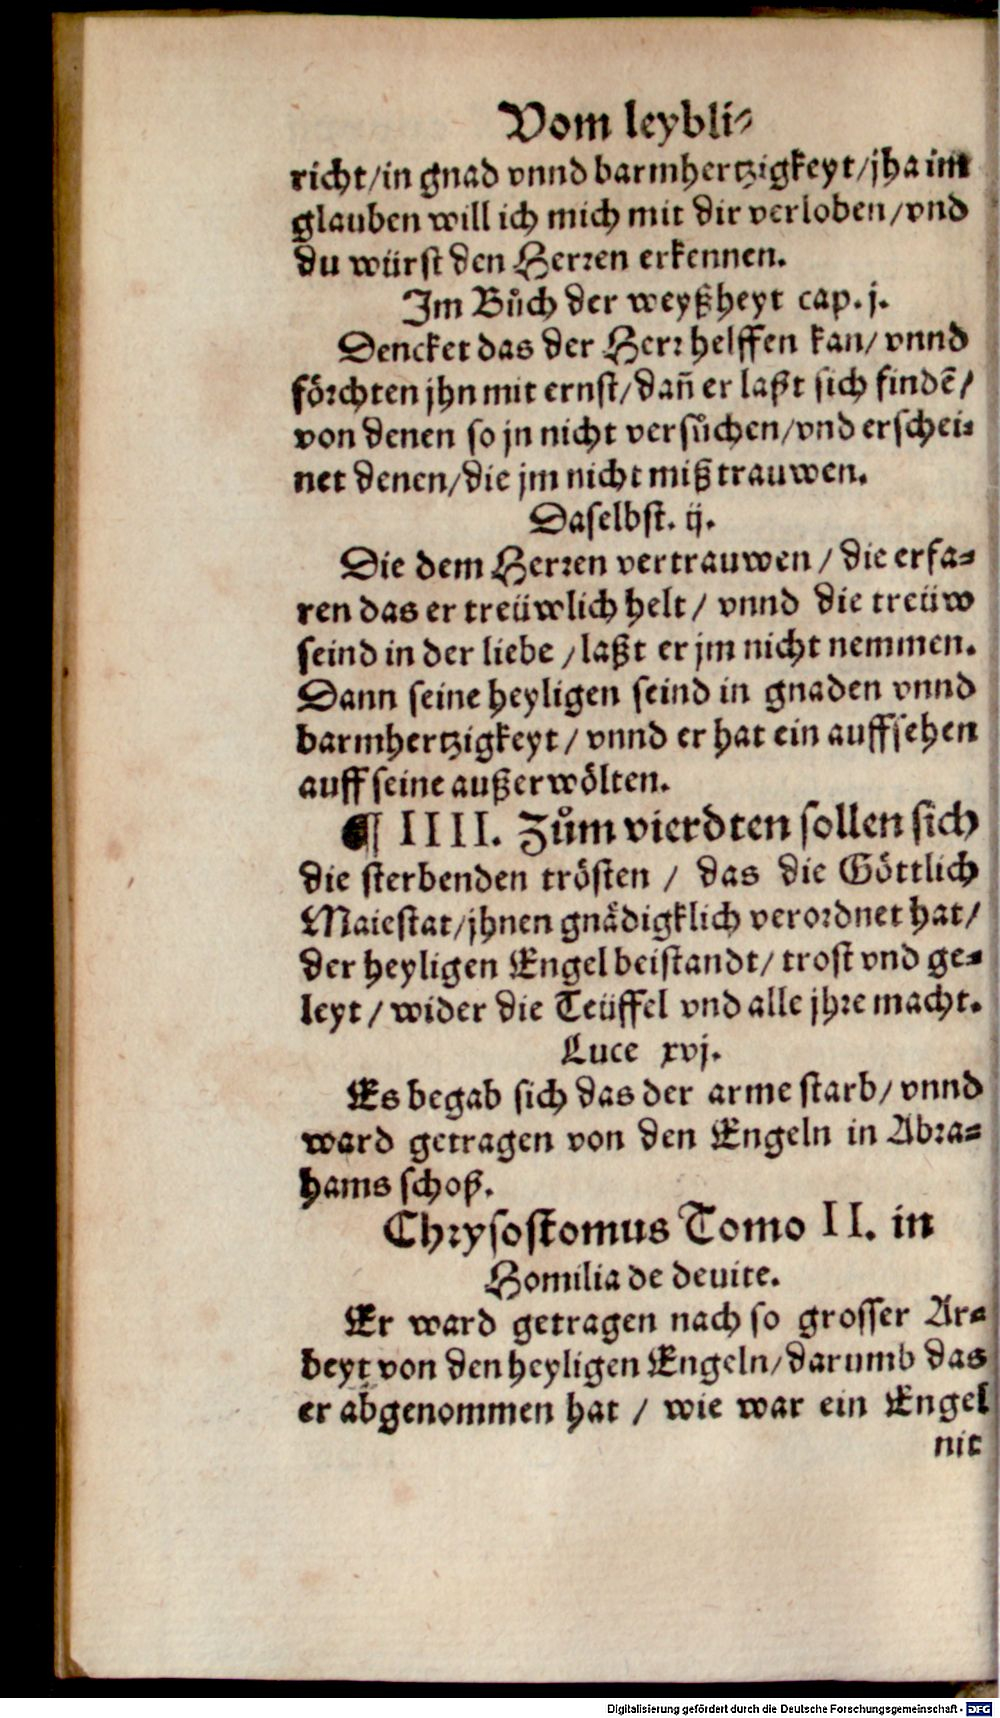 Vom leybli⸗
richt/in gnad vnnd barmhertzigkeyt/jha im
glauben will ich mich mit dir verloben/vnd
du würst den Herren erkennen.
Im Bůch der weyßheyt cap. j.
Dencket das der Herr helffen kan/ vnnd
förchten jhn mit ernst/dañ er laßt sich findē/
von denen so jn nicht versůchen/vnd erschei⸗
net denen/die jm nicht mißtrauwen.
Daselbst. ij.
Die dem Herren vertrauwen / die erfa⸗
ren das er treüwlich helt / vnnd die treüw
seind in der liebe /laßt er jm nicht nemmen.
Dann seine heyligen seind in gnaden vnnd
barmhertzigkeyt / vnnd er hat ein auffsehen
auff seine außerwölten.
¶ IIII. Zům vierdten sollen sich
die sterbenden trösten / das die Göttlich
Maiestat/jhnen gnädigklich verordnet hat/
der heyligen Engel beistandt/ trost vnd ge⸗
leyt / wider die Teüffel vnd alle jhre macht.
Luce xvj.
Es begab sich das der arme starb/ vnnd
ward getragen von den Engeln in Abra⸗
hams schoß.
Chrysostomus Tomo II. in
Homilia de deuite.
Er ward getragen nach so grosser Ar⸗
beyt von den heyligen Engeln/darumb das
er abgenommen hat / wie war ein Engel
nit
Digitalisierung gefördert durch die Deutsche Forschungsgemeinschaft - DFG